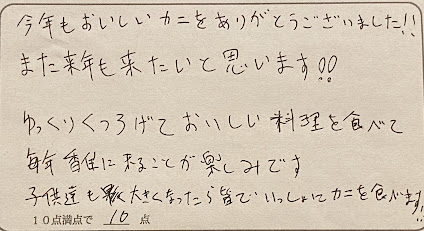 今年もおいしいカニをありがとうございました!!
また来年も来たいと思います!!
ゆっくりくつろげておいしい料理を食べて
毎年香住に来ることが楽しみです
子供達も大きくなったら皆でいっしょにカニを食べます!
10点満点で 10 点